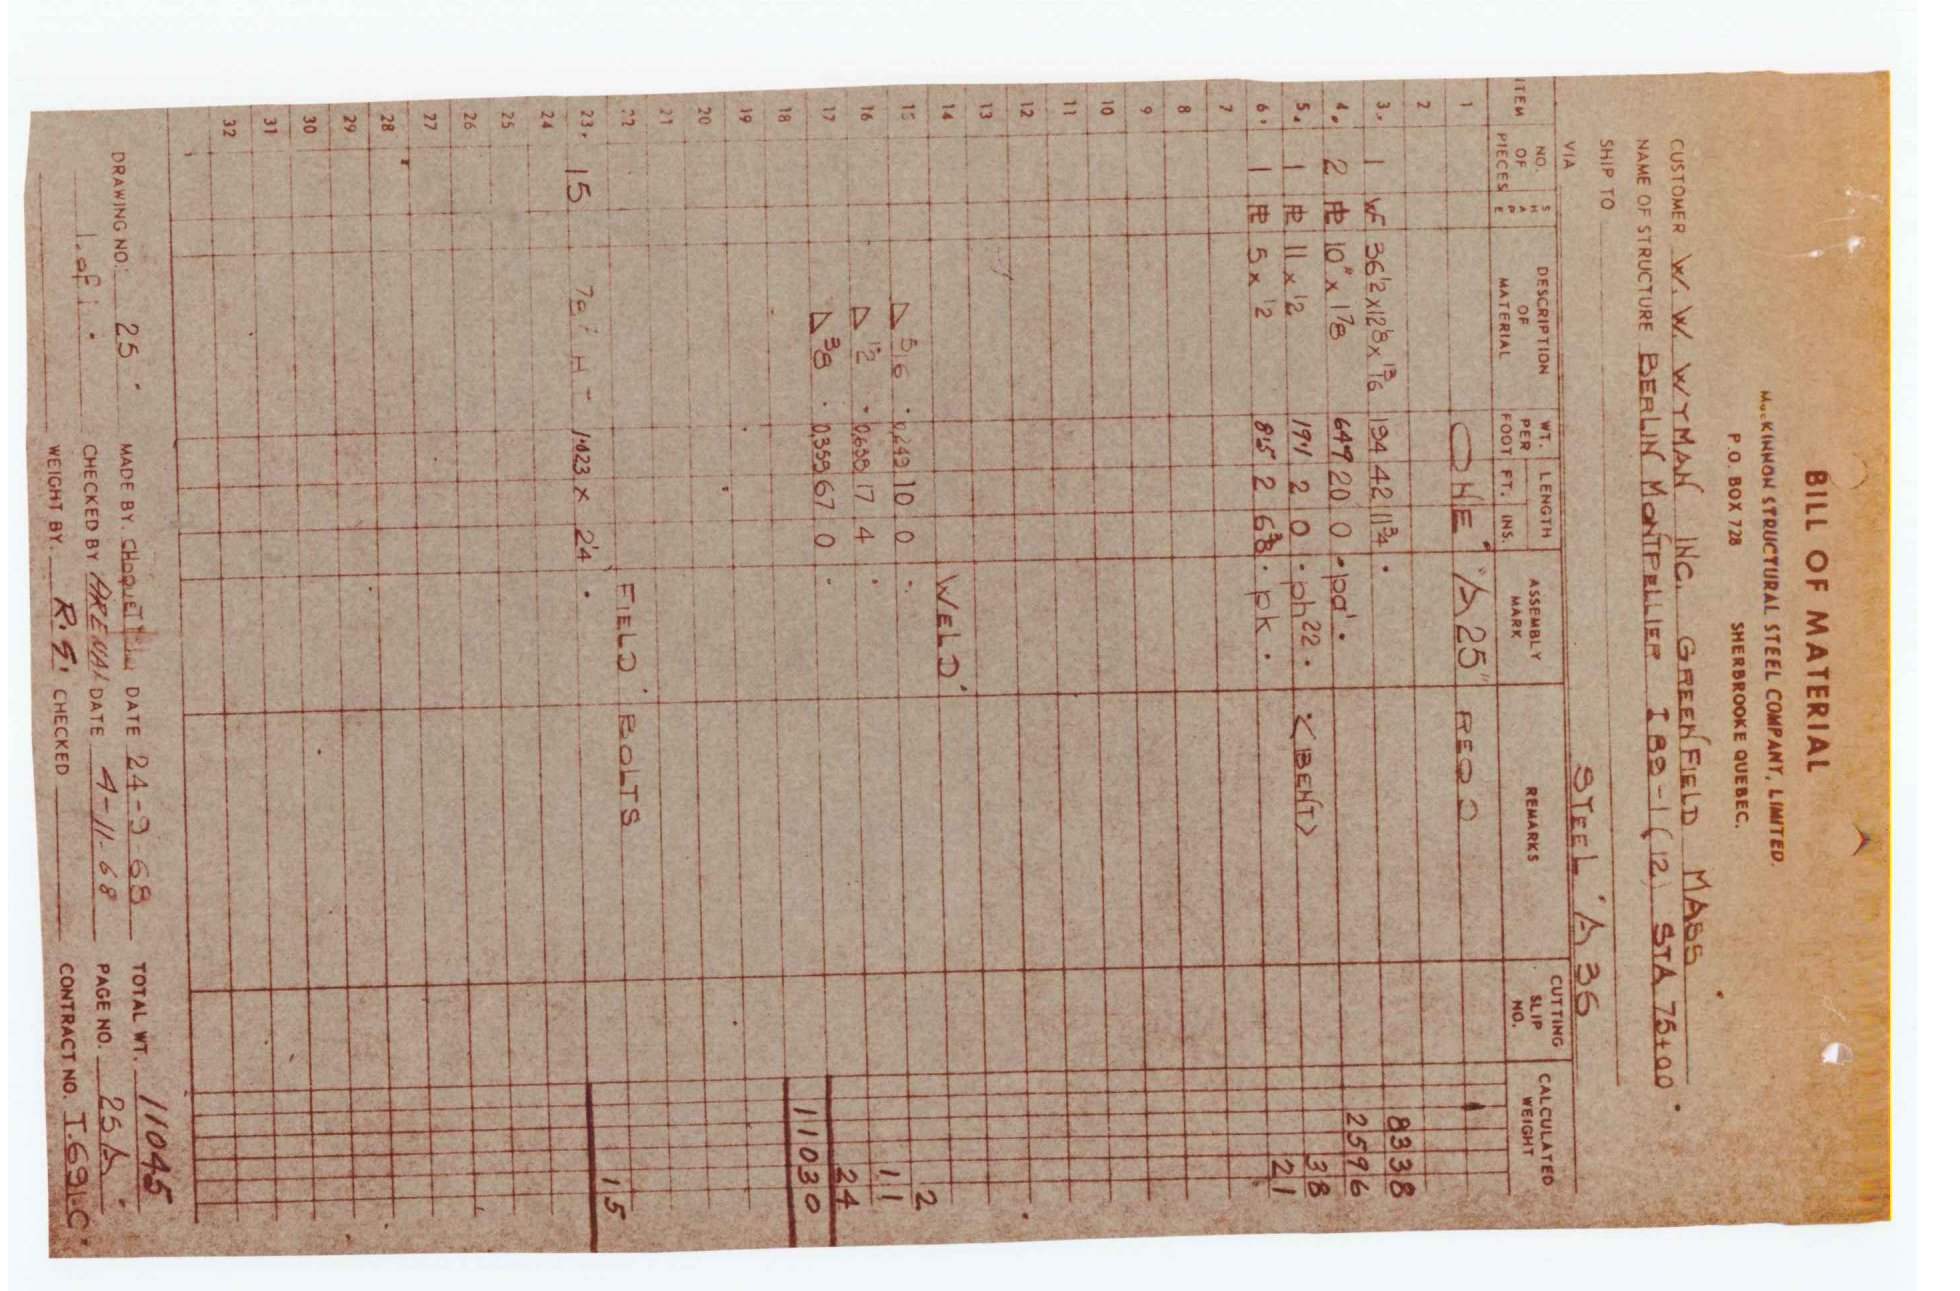 BILL OF MATERIAL
MacKINNON STRUCTURAL STEEL COMPANY, LIMITED.
P.O. BOX 728 SHERBROOKE QUEBEC.
CUSTOMER W. W. WYMAN INC. GREENFIELD MASS
NAME OF STRUCTURE BERLIN MONTPELLIER I 89-1 (12) STA 75+00
SHIP TO
VIA STEEL A 36
ITEM NO. OF PIECES SHAPE DESCRIPTION OF MATERIAL WT. PER FOOT LENGTH FT. INS. ASSEMBLY MARK REMARKS CUTTING SLIP NO. CALCULATED WEIGHT
1 ONE "A25" REQD
2
3. 1 WF 36 1/2 x 12 1/8 x 13/16 194 42 11 3/4 . 8338
4. 2 PL 10" x 1 7/8 64.9 20 0 . pa' . 2596
5. 1 PL 11 x 1/2 19.1 2 0 . ph22 . < BENT > 38
6. 1 PL 5 x 1/2 8.5 2 6 3/8 . pk . 21
7
8
9
10
11
12
13
14 WELD. 2
15 5/16 . 0.249 10 0 . 11
16 1/2 . 0.638 17 4 . 24
17 3/8 . 0.359 67 0 . 11030
18
19
20
21
22 FIELD BOLTS 15
23. 15 7/8 H - 1.023 x 24 .
24
25
26
27
28
29
30
31
32
DRAWING NO. 25 . MADE BY. CHOQUETTE DATE 24-9-68 TOTAL WT. 11045
1 . of 1 . CHECKED BY DATE 4-11-68 PAGE NO. 25A .
WEIGHT BY. R.S. CHECKED CONTRACT NO. T.69LC.